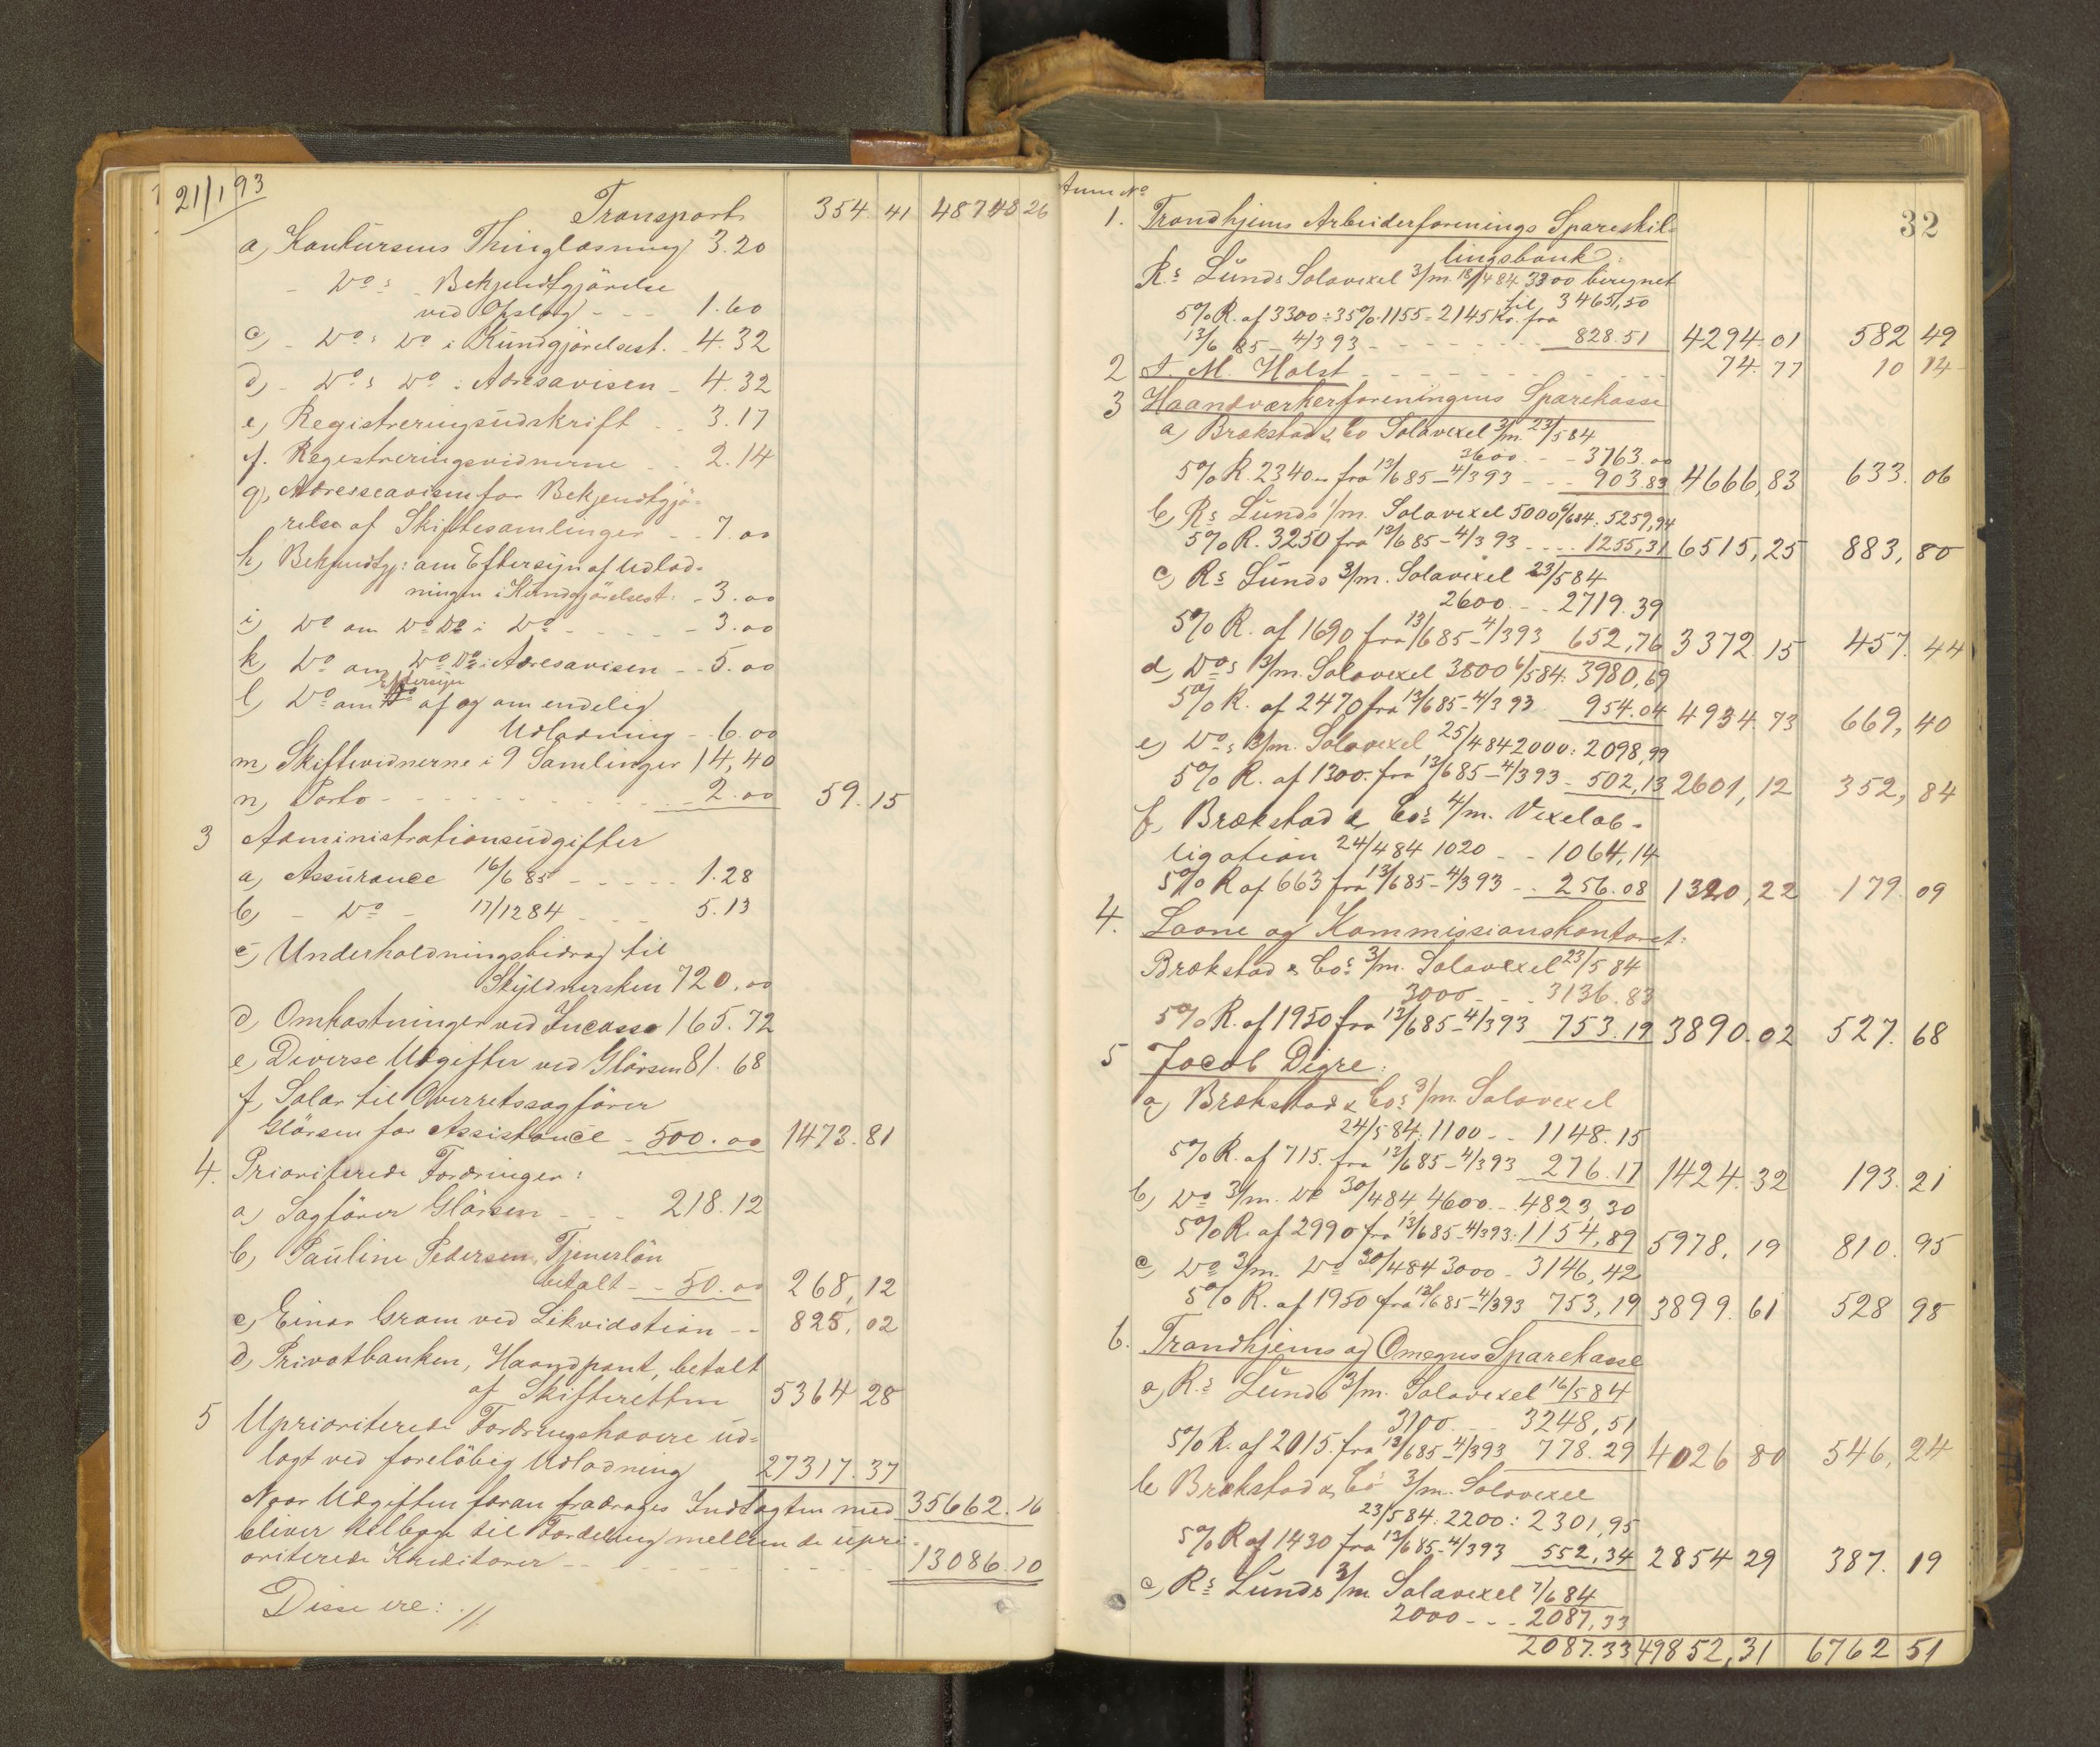 21/1 93
Transport 354.41 48748 26
a, Konkursens Thinglæsning 3.20
- Do s - Bekjendtgjörelse
ved Opslag - - - 1.60
c) - Do s Do i Kundgjörelsest. - 4.32
d) - Do s Do i Adresavisen - 4.32
e, Registreringsudskrift - - 3.17
f. Registreringsvidnerne - - 2.14
g, Adresseavisen for Bekjendtgjö-
relse af Skiftesamlinger - - 7.00
h, Bekjendtgj: om Eftersyn af Udlod-
ningen i Kundgjörelsest: - 3.00
i) Do om Do Do i Do - - - - - 3.00
k, Do om Do Do i Adresavisen - - 5.00
Eftersyn
l, Do om af og om endelig
Udlodning - - 6.00
m, Skiftevidnerne i 9 Samlinger 14,40
n, Porto - - - - - - - 2.00 59.15
3 Administrationsudgifter
a, Assurance 16/6 85 - - - - - 1.28
b, - Do - 17/12 84 - - - 5.13
c, Underholdningsbidrag til
Skyldnersken 720.00
d, Omkostninger ved Incasso 165.72
e, Diverse Udgifter ved Glörsen 81.68
f, Salær til Overretssagförer
Glörsen for Assistance - 500.00 1473.81
4. Prioriterede Fordringer:
a, Sagförer Glörsen - - - 218.12
b, Pauline Pedersen, Tjenerlön
betalt - - 50.00 268,12
c, Einar Gram ved Likvidation - - 825,02
d, Privatbanken, Haandpant, betalt
af Skifteretten 5364 28
5 Uprioriterede Fordringshavere ud-
lagt ved foreløbig Udlodning 27317.37
Naar Udgiften foran fradrages Indtægten med 35662.16
bliver tilbage til Fordeling mellem de upri-
oriterede Kreditorer - - - - - - - 13086.10
Disse ere: //.
Anm No
32
1. Trondhjems Arbeiderforenings Spareskil-
lingsbank:
Rs Lunds Solavexel 3/m. 18/4 84 3300 beregnet
til 3465,50
5% R. af 3300 ÷ 35% 1155 = 2145 Kr. fra
13/6 85 - 4/3 93 - - - - - - 828.51 4294.01 582 49
2 A. M. Holst - - - - - - - - - 74.77 10 14
3 Haandværkerforeningens Sparekasse
a) Brækstad & Co Solavexel 3/m. 23/5 84
3600 - - 3763.00
5% R. 2340 fra 13/6 85 - 4/3 93 - - - 903.83 4666,83 633.06
b, Rs Lunds 1/m. Solavexel 5000 6/6 84. 5259,94
5% R. 3250 fra 13/6 85 - 4/3 93 - - - 1255,31 6515,25 883,80
c) Rs Lunds 3/m. Solavexel 23/5 84
2600 - - 2719.39
5% R. af 1690 fra 13/6 85 - 4/3 93 652,76 3372.15 457.44
d, Do s 3/m. Solavexel 3800 6/5 84. 3980,69
5% R. af 2470 fra 13/6 85 - 4/3 93 954.04 4934.73 669,40
e) Do s 3/m. Solavexel 25/4 84 2000: 2098,99
5% R. af 1300. fra 13/6 85 - 4/3 93 - 502,13 2601,12 352,84
f, Brækstad & Cos 4/m. Vexelob-
ligation 24/4 84 1020 - - 1064,14
5% R af 663 fra 13/6 85 - 4/3 93 - - 256.08 1320,22 179.09
4. Laane og Kommissionskontoret:
Brækstad & Cos 3/m. Solavexel 23/5 84
3000 - - - 3136.83
5% R. af 1950 fra 13/6 85 - 4/3 93 753.19 3890.02 527.68
5 Jacob Digre:
a) Brækstad & Cos 3/m. Solavexel
24/5 84. 1100 - - 1148.15
5% R. af 715. fra 13/6 85 - 4/3 93 276.17 1424.32 193.21
b, Do 3/m. Do 30/4 84 4600 - - 4823,30
5% R. af 2990 fra 13/6 85 - 4/3 93. 1154,89 5978,19 810.95
c, Do 3/m. Do 30/4 84 3000 - 3146,42
5% R. af 1950 fra 13/6 85 - 4/3 93 753,19 3899.61 528 98
6. Trondhjems og Omegns Sparekasse
a, Rs Lunds 3/m. Solavexel 16/5 84
3100 - - - 3248,51
5% R. af 2015. fra 13/6 85 - 4/3 93 778.29 4026 80 546,24
b, Brækstad & Co 3/m. Solavexel
23/5 84. 2200: 2301,95
5% R af 1430 fra 13/6 85 - 4/3 93 552,34 2854 29 387.19
c, Rs Lunds 3/m Solavexel 7/6 84
2000 - - - 2087,33
2087.33 49852,31 6762 51